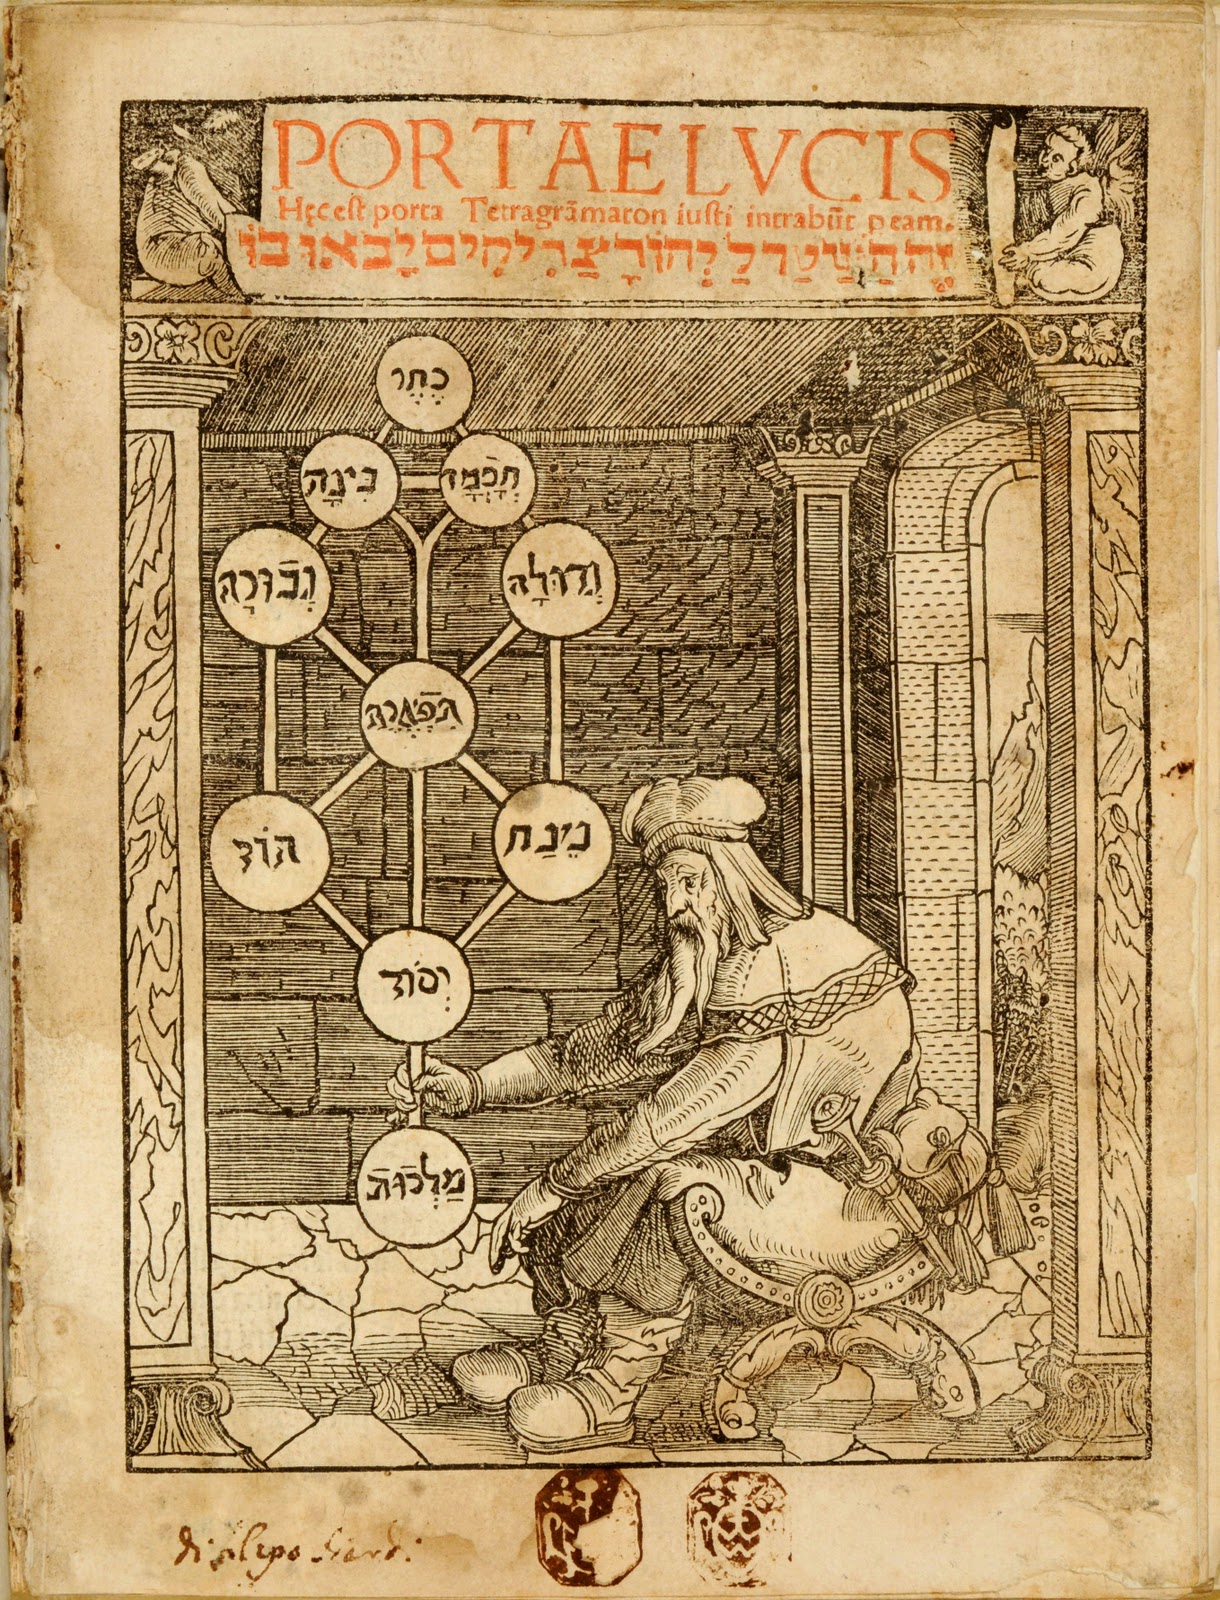 PORTAE LVCIS
Hęc est porta Tetragrãmaton iusti intrabũt p eam.
זֶה הַשַּׁעַר לַיְהוָה צַדִיקִים יָבֹאוּ בוֹ
כֶתֶר
חָכְמָה
בִינָה
גְדוּלָה
גְבוּרָה
תִפְאֶרֶת
נֵצַח
הוֹד
יְסוֹד
מַלְכוּת